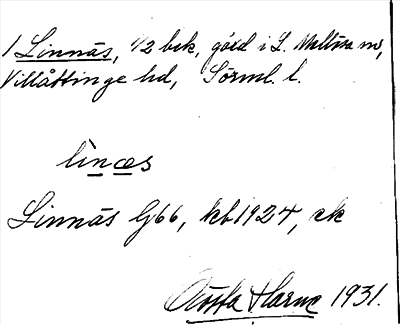 1 Linnäs, 1/2 bek, gård i L. Mellösa sn,
Villåttinge hd, Sörml. l.
lìnæs
Linnäs Gb6, kb1924, ek
Gösta Harne 1931.